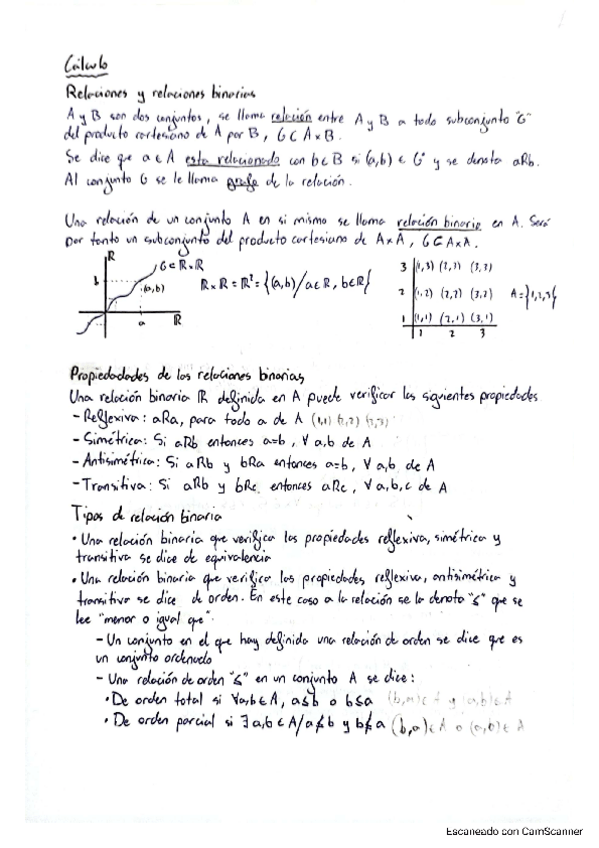 Cálculo
Relaciones y relaciones binarias
A y B son dos conjuntos, se llama relación entre A y B a todo subconjunto "G"
del producto cartesiano de A por B, G⊂A×B.
Se dice que a∈A esta relacionado con b∈B si (a,b) ∈ G y se denota aRb.
Al conjunto G se le llama grafo de la relación.
Una relación de un conjunto A en si mismo se llama relación binaria en A. Será
por tanto un subconjunto del producto cartesiano de A×A, G⊂A×A.
R
G⊂R×R
b
(a,b)
a
R
R×R=R²={(a,b)/a∈R, b∈R}
3 (1,3) (2,3) (3,3)
2 (1,2) (2,2) (3,2)
1 (1,1) (2,1) (3,1)
1 2 3
A={1,2,3}
Propiedadades de las relaciones binarias
Una relación binaria R definida en A puede verificar las siguientes propiedades
- Reflexiva: aRa, para todo a de A (1,1) (2,2) (3,3)
- Simétrica: Si aRb entonces a=b, ∀ a,b de A
- Antisimétrica: Si aRb y bRa entonces a=b, ∀ a,b de A
- Transitiva: Si aRb y bRc entonces aRc, ∀ a,b,c de A
Tipos de relación binaria
• Una relación binaria que verifica las propiedades reflexiva, simétrica y
transitiva se dice de equivalencia
• Una relación binaria que verifica las propiedades reflexiva, antisimétrica y
transitiva se dice de orden. En este caso a la relación se la denota "≤" que se
lee "menor o igual que".
- Un conjunto en el que hay definida una relación de orden se dice que es
un conjunto ordenado
- Una relación de orden "≤" en un conjunto A se dice:
• De orden total si ∀a,b∈A, a≤b o b≤a (b,a)∈A y (a,b)∈A
• De orden parcial si ∃ a,b∈A/a≰b y b≰a (b,a)∈A o (a,b)∈A
Escaneado con CamScanner